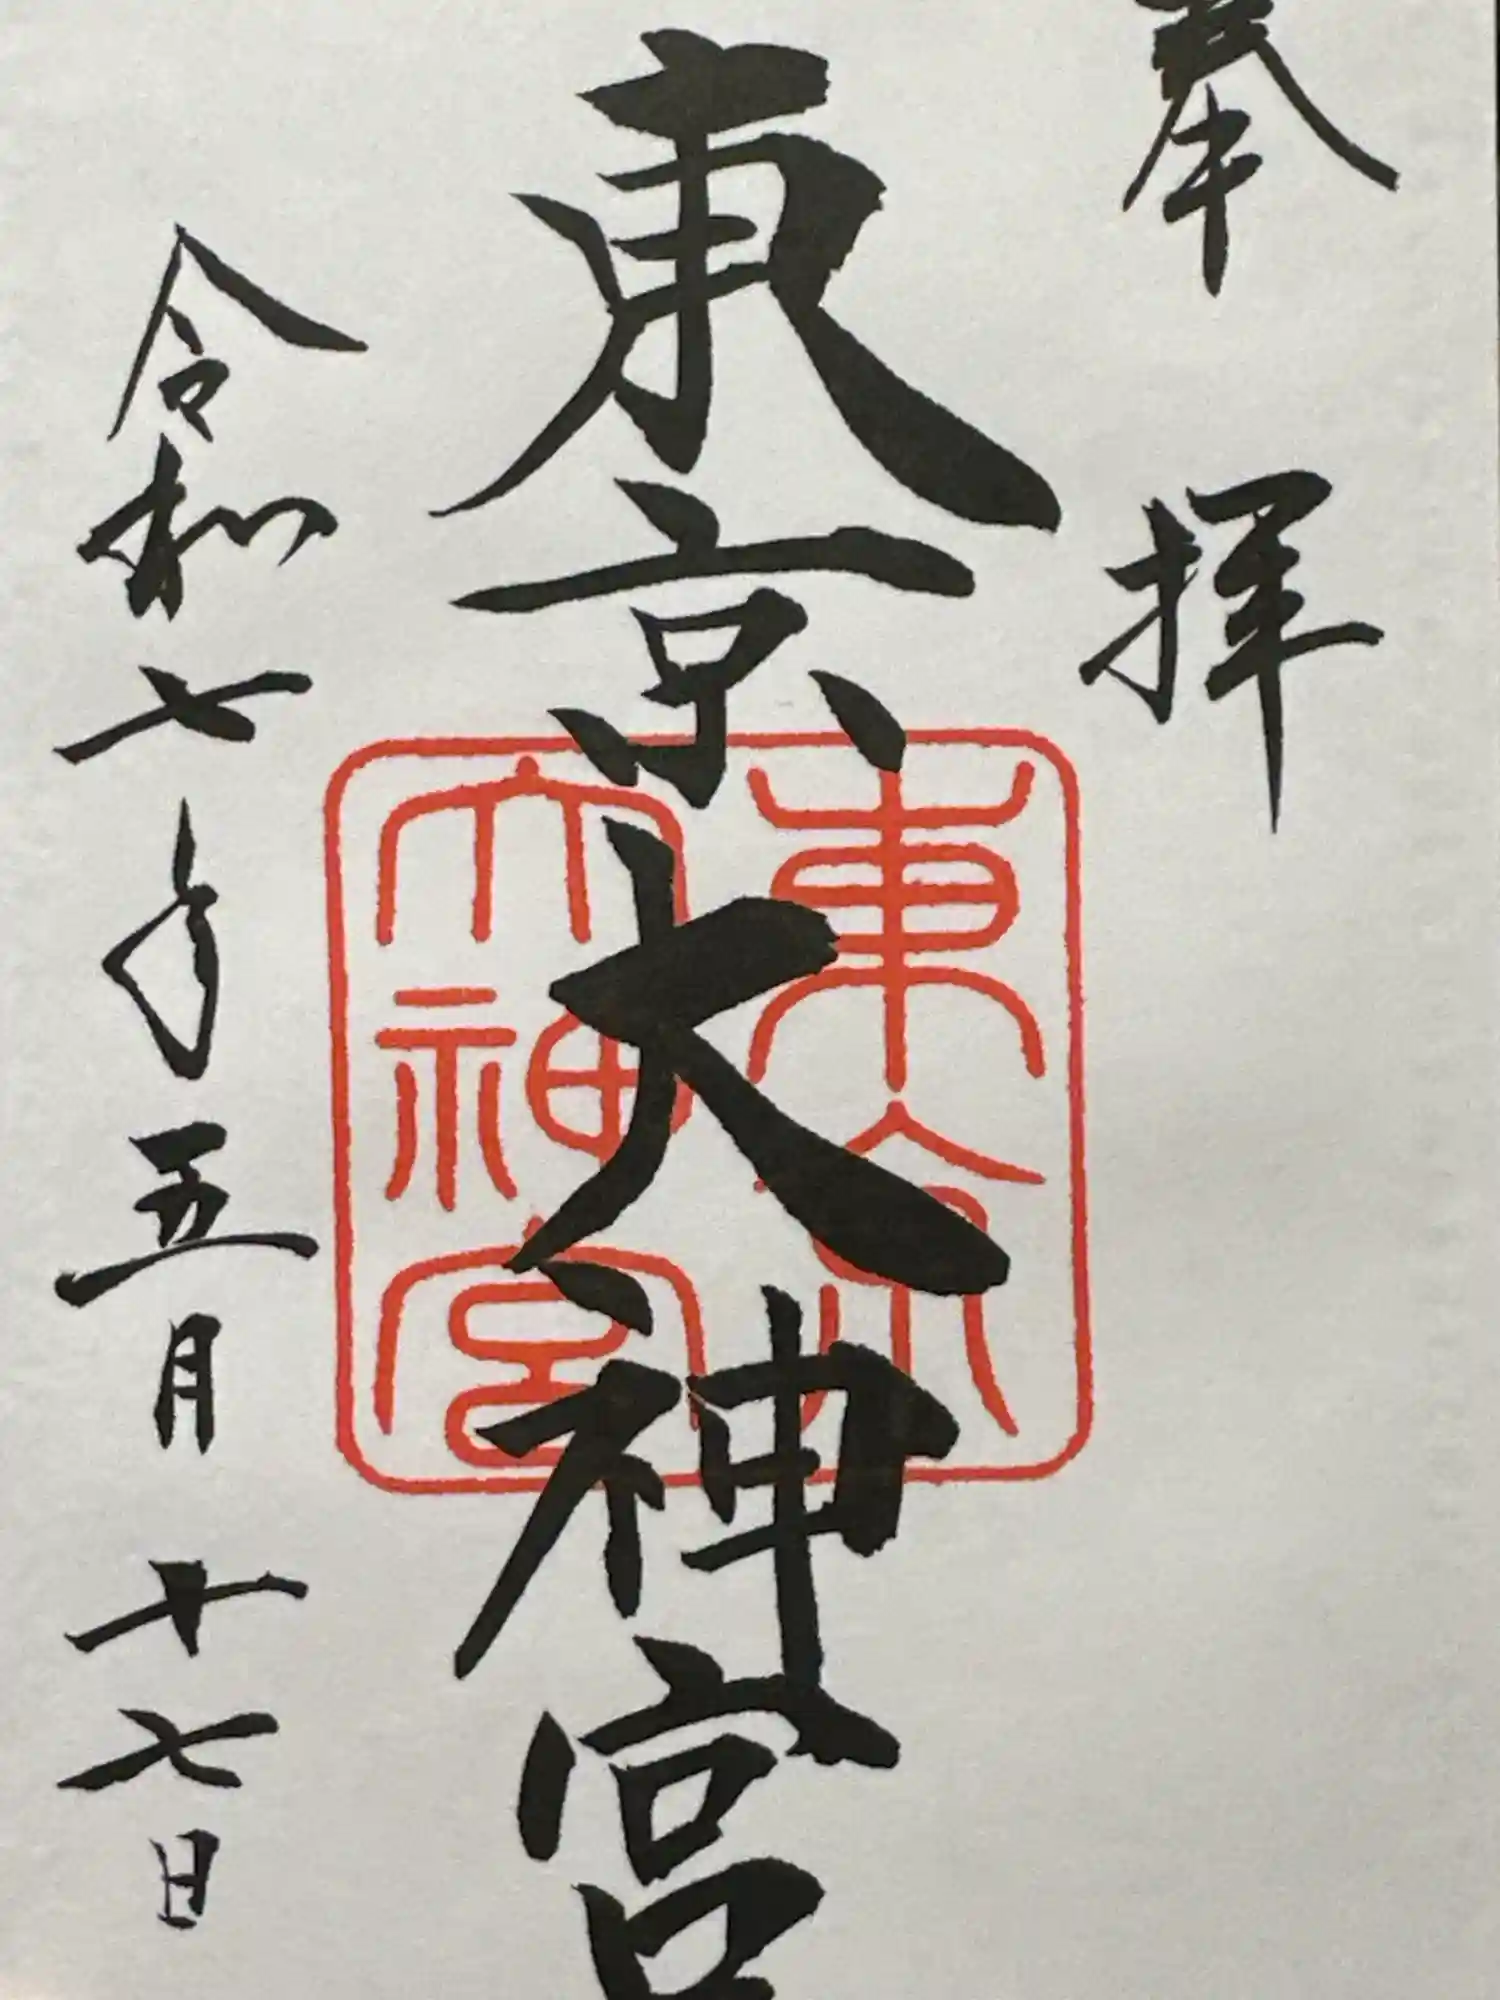 奉拝
東京大神宮
東京
大神宮
令和七年五月十七日